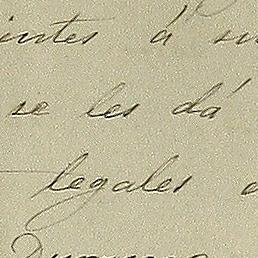 intes á su
se les dá
legales